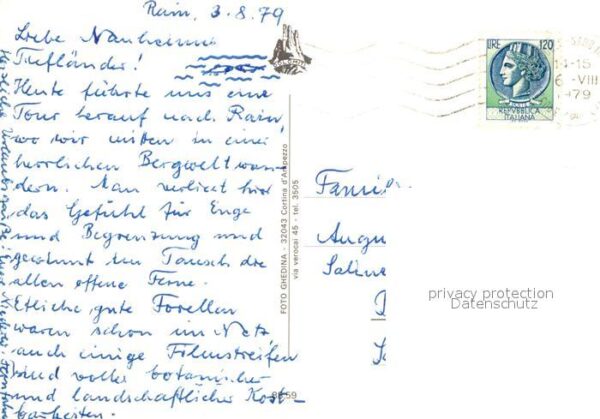 Rein, 3.8.79
Liebe Nauheimer
Tiefländer!
Heute führte uns eine
Tour herauf nach Rein,
wo wir mitten in einer
herrlichen Bergwelt wan-
dern. Man verliert hier
das Gefühl für Enge
und Begrenzung und
gewinnt im Tausch die
allen offene Ferne.
Etliche gute Forellen
waren schon im Netz
auch einige Filmstreifen
sind voller botanischer
und landschaftlicher Kost-
barkeiten.
Herzliche Urlaubsgrüße
FOTO GHEDINA - 32043 Cortina d'Ampezzo
via verocai 45 - tel. 3505
8659
LIRE 120
REPUBBLICA
ITALIANA
14-15
6-VIII
1979
Fami
Augu
Saline
privacy protection
Datenschutz